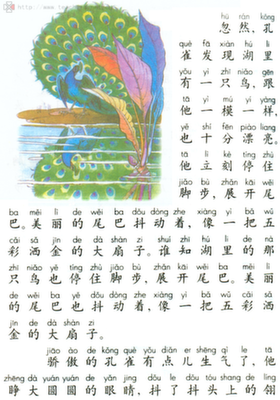 hū rán kǒng
忽然,孔
què fā xiàn hú lǐ
雀发现湖里
yǒu yì zhī niǎo gēn
有一只鸟,跟
tā yì mú yí yàng
他一模一样,
yě shí fēn piào liang
也十分漂亮。
tā lì kè tíng zhù
他立刻停住
jiǎo bù zhǎn kāi wěi
脚步,展开尾
ba měi lì de wěi ba dǒu dòng zhe xiàng yì bǎ wǔ
巴。美丽的尾巴抖动着,像一把五
cǎi sǎ jīn de dà shàn zi shuí zhī hú lǐ de nà
彩洒金的大扇子。谁知湖里的那
zhī niǎo yě tíng zhù jiǎo bù zhǎn kāi wěi ba měi lì
只鸟也停住脚步,展开尾巴。美丽
de wěi ba yě dǒu dòng zhe xiàng yì bǎ wǔ cǎi sǎ
的尾巴也抖动着,像一把五彩洒
jīn de dà shàn zi
金的大扇子。
jiāo ào de kǒng què yǒu diǎn er shēng qì le tā
骄傲的孔雀有点儿生气了,他
zhēng dà yuán yuán de yǎn jing dǒu le dǒu tóu shang de líng
睁大圆圆的眼睛,抖了抖头上的翎